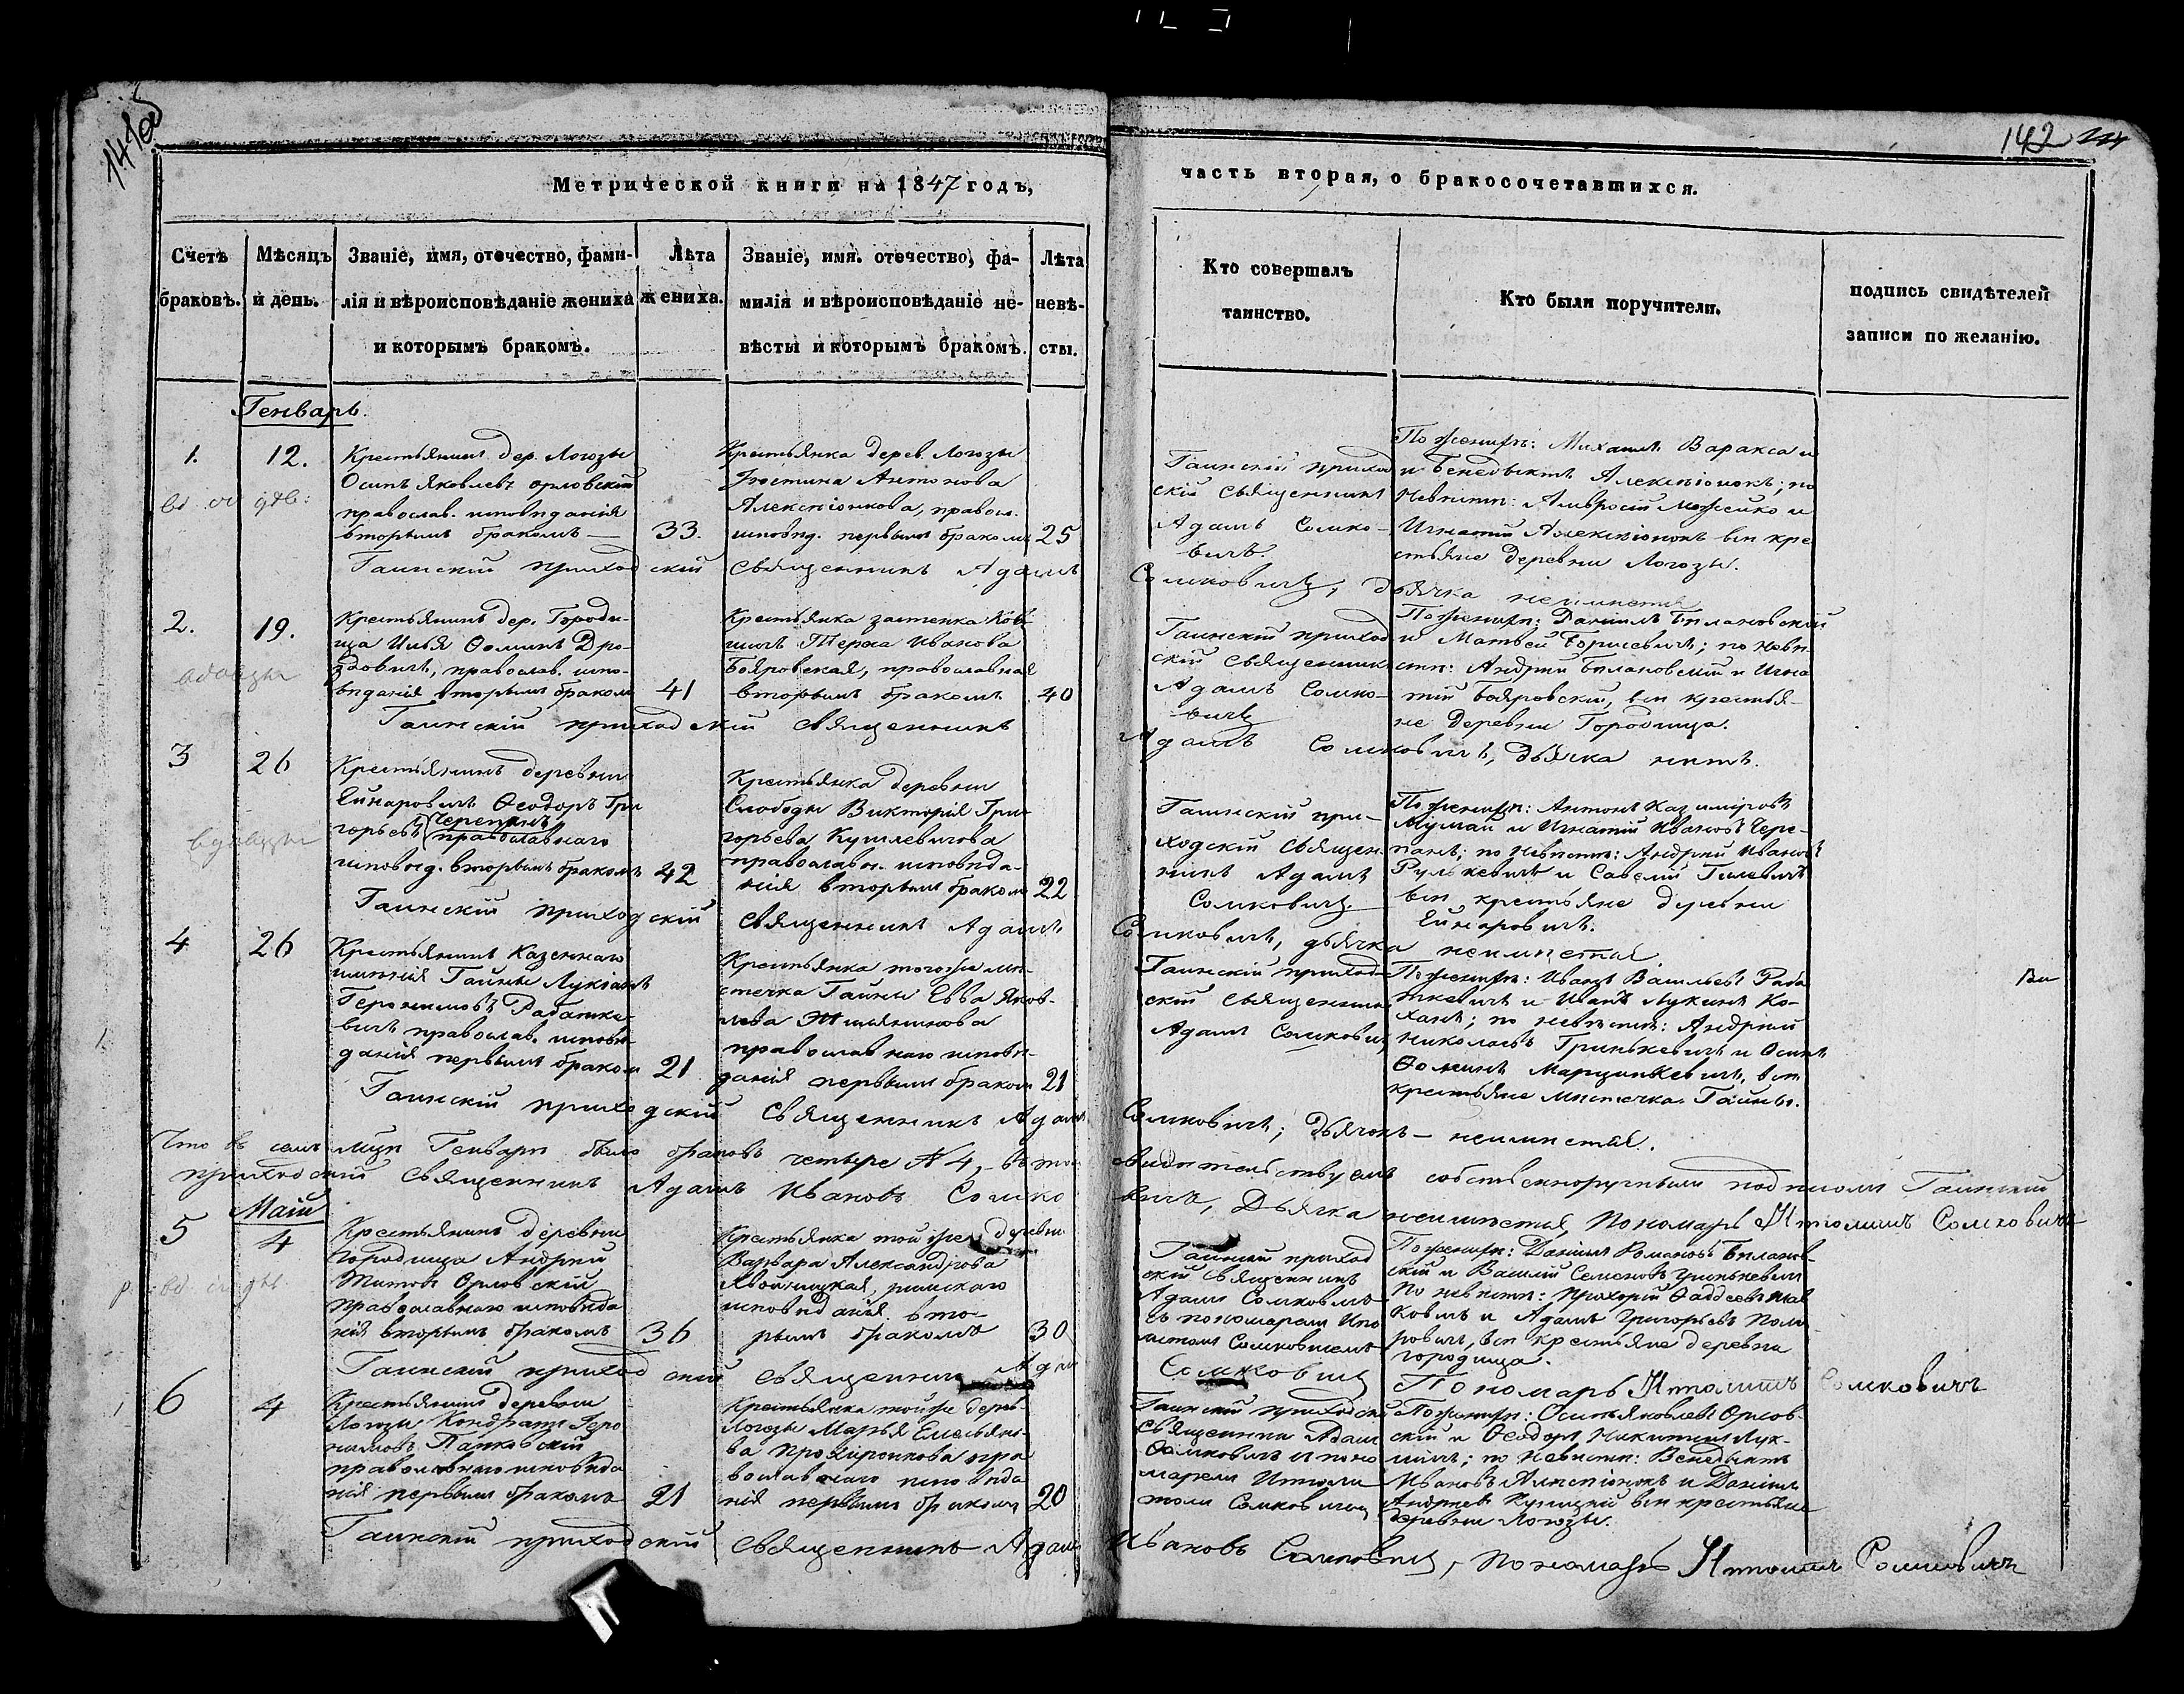 142
Метрической книги на 1847 годъ,
часть вторая, о бракосочетавшихся.
Счетъ браковъ.
Мѣсяцъ и день.
Званіе, имя, отечество, фами-
лія и вѣроисповѣданіе жениха
и которымъ бракомъ.
Лѣта
жениха.
Званіе, имя. отечество, фа-
милія и вѣроисповѣданіе не-
вѣсты и которымъ бракомъ.
Лѣта
невѣ-
сты.
Кто совершалъ
таинство.
Кто были поручители.
подпись свидѣтелей
записи по желанію.
Генварь.
1.
12.
Крестьянинъ дер. Логозы
Осипъ Яковлевъ Орловскій
православ. исповѣданія
вторымъ бракомъ —
33.
Крестьянка дерев. Логозы
Іюстина Антонова
Алексіонкова, правосл.
исповѣд. первымъ бракомъ
25
Гаинскій приход
скій священникъ
Адамъ Сомко-
вичъ.
По женихѣ: МихаилъВаракса и
и Бенедыктъ Алексіонокъ; по
невѣстѣ: Амвросій Можейко и
Игнатій Алексіонокъ всѣ кре
стьяне деревни Логозы.
Гаинскій приходскій священникъ Адамъ
Сомковичъ, дьячка неимѣется
2.
19.
Крестьянинъ дер. Городи-
ща Илья Ѳоминъ Дро-
здовичъ, православ. испо-
вѣданія вторымъ бракомъ
41
Крестьянка застенка
Текла Иванова
Бояровская, православная
вторымъ бракомъ
40
Гаинскій приход
скій священникъ
Адамъ Сомко-
вичъ
По женихѣ: Даніилъ Билановскій
и Матвей Борисевичъ; по невѣ-
стѣ: Андрей Билановскій и Игна
тій Бояровскій, всѣ крестья-
не деревни Городища.
Гаинскій приходскій священникъ
Адамъ Сомковичъ, дьячка нѣтъ.
3
26
Крестьянинъ деревни
Ейнаровичъ Ѳеодоръ Гри
горьевъ Черепанъ
православнаго
исповѣд. вторымъ бракомъ
42
Крестьянка деревни
Слободы Викторія Гри-
горьева Кушлевичова
православн. исповѣда-
нія вторымъ бракомъ
22
Гаинскій при-
ходскій священ-
никъ Адамъ
Сомковичъ
По женихѣ: Антонъ Казиміровъ
и Игнатій Ивановъ Чере-
панъ; по невѣстѣ: Андрей Ивановъ
Рулькевичъ и Савелій Гилевичъ
всѣ крестьяне деревни
Ейнаровичъ.
Гаинскій приходскій священникъ Адамъ
Сомковичъ, дьячка неимѣется
4
26
Крестьянинъ Казеннаго
имѣнія Гайны Лукіанъ
Геронимовъ Радошке-
вичъ православ. исповѣ-
данія первымъ бракомъ
21
Крестьянка тогоже мѣ-
стечка Гайны Евва Яков-
лева
православнаго исповѣ-
данія первымъ бракомъ
21
Гаинскій приход-
скій священникъ
Адамъ Сомковичъ
По женихѣ: Иванъ Васильевъ Рада
шкевичъ и Иванъ Лукинъ Ко-
ханъ; по невѣстѣ: Андрей
Николаевъ Гринькевичъ и Осипъ
Ѳоминъ Марцинкевичъ, всѣ
крестьяне мѣстечка Гайны.
Гаинскій приходскій священникъ Адамъ
Сомковичъ; дьячокъ — неимѣется.
Что въ семъ мцѣ Генварѣ было браковъ четыре № 4, – въ томъ
свидѣтельствуемъ собственноручнымъ подписомъ Гаинскій
приходскій священникъ Адамъ Ивановъ Сомко
вичъ, Дьячка неимѣется, Пономарь Ипполитъ Сомковичъ
Маій
5
4
Крестьянинъ деревни
Городища Андрей
Титовъ Орловскій
православнаго исповѣда
нія вторымъ бракомъ
36
Крестьянка той же деревни
Варвара Александрова
Хвойницкая, римскаго
исповѣданія вто-
рымъ бракомъ
30
Гаинскій приход
скій священникъ
Адамъ Сомковичъ
съ пономаремъ Ипо
литомъ Сомковичемъ
По женихѣ: Даніилъ Романовъ Биланов-
скій и Василій Семеновъ Гринькевичъ
По невѣстѣ: Прохорій Ѳаддеевъ
и Адамъ Григорьевъ
всѣ крестьяне деревни
городища.
Гаинскій приходскій священникъ Адамъ
Сомковичъ
Пономарь Ипполитъ Сомковичъ
6
4
Крестьянинъ деревни
Логозы Кондратъ Геро
нимовъ Панковскій
православнаго исповѣда
нія первымъ бракомъ
21
Крестьянка тойже дерев.
Логозы Марья Емельяно-
ва пра
вославнаго исповѣда
нія первымъ бракомъ
20
Гаинскій приходскій
священникъ Адамъ
Сомковичъ и поно
маремъ Ипполи
томъ Сомковичемъ
По женихѣ: Осипъ Яковлевъ Орлов-
скій и Ѳеодоръ Никитинъ
по невѣстѣ: Венедыктъ
Ивановъ Алексіонокъ и Даніилъ
Андреевъ Куницкій всѣ крестьяне
деревни Логозы.
Гаинскій приходскій священникъ Адамъ
Ивановъ Сомковичъ, Пономарь Ипполитъ Сомковичъ